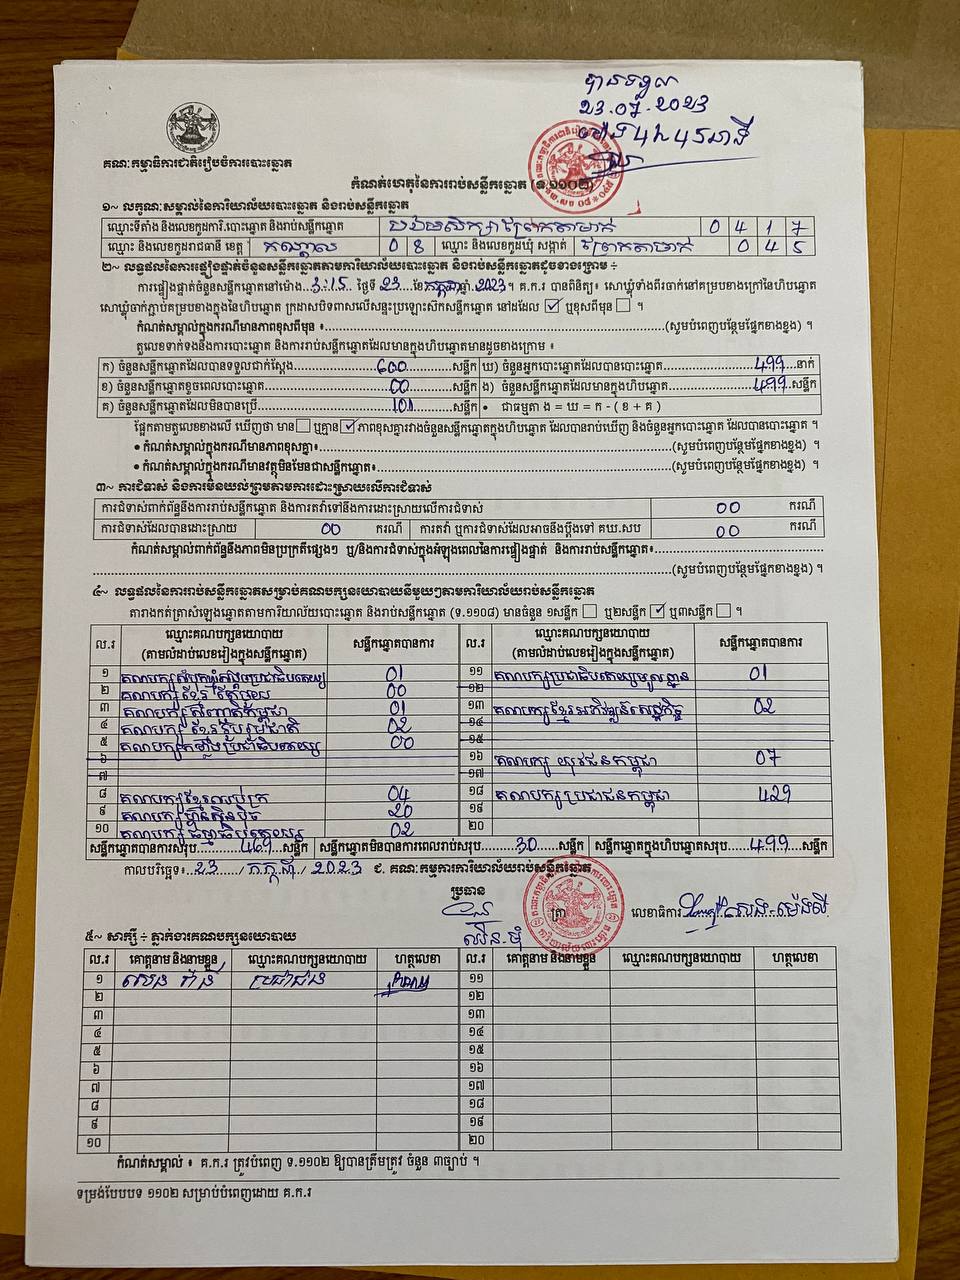 បានទទួល
23.07.2023
ម៉ោង 4h45នាទី
គណៈកម្មាធិការជាតិរៀបចំការបោះឆ្នោត
កំណត់ហេតុនៃការរាប់សន្លឹកឆ្នោត (ទ.១១០២)
១~ លក្ខណៈសម្គាល់នៃការិយាល័យបោះឆ្នោត និងរាប់សន្លឹកឆ្នោត
ឈ្មោះទីតាំង និងលេខកូដការិ.បោះឆ្នោត និងរាប់សន្លឹកឆ្នោត បឋមសិក្សាព្រែកតាមាក់ 0 4 1 7
ឈ្មោះ និងលេខកូដរាជធានី ខេត្ត កណ្តាល 0 8 ឈ្មោះ និងលេខកូដឃុំ សង្កាត់ ព្រែកតាមាក់ 0 4 5
២~ លទ្ធផលនៃការផ្ទៀងផ្ទាត់ចំនួនសន្លឹកឆ្នោតតាមការិយាល័យបោះឆ្នោត និងរាប់សន្លឹកឆ្នោតដូចខាងក្រោម ÷
ការផ្ទៀងផ្ទាត់ចំនួនសន្លឹកឆ្នោតនៅម៉ោង 3:15 ថ្ងៃទី 23 ខែ កក្កដា ឆ្នាំ 2023 ។ គ.ក.រ បានពិនិត្យ៖ សោឃ្លុំទាំងពីរចាក់នៅគម្របខាងក្រៅនៃហិបឆ្នោត
សោឃ្លុំចាក់ភ្ជាប់គម្របខាងក្នុងនៃហិបឆ្នោត ក្រដាសបិទពាសលើសន្ទះប្រឡោះស៊កសន្លឹកឆ្នោត នៅដដែល ☑ ឬខុសពីមុន ☐ ។
កំណត់សម្គាល់ក្នុងករណីមានភាពខុសពីមុន ៖ (សូមបំពេញបន្ថែមផ្នែកខាងខ្នង) ។
តួលេខទាក់ទងនឹងការបោះឆ្នោត និងការរាប់សន្លឹកឆ្នោតដែលមានក្នុងហិបឆ្នោតមានដូចខាងក្រោម ៖
ក) ចំនួនសន្លឹកឆ្នោតដែលបានទទួលជាក់ស្តែង 600 សន្លឹក ឃ) ចំនួនអ្នកបោះឆ្នោតដែលបានបោះឆ្នោត 499 នាក់
ខ) ចំនួនសន្លឹកឆ្នោតខូចពេលបោះឆ្នោត 00 សន្លឹក ង) ចំនួនសន្លឹកឆ្នោតដែលមានក្នុងហិបឆ្នោត 499 សន្លឹក
គ) ចំនួនសន្លឹកឆ្នោតដែលមិនបានប្រើ 101 សន្លឹក • ជាធម្មតា ង = ឃ = ក - ( ខ + គ )
ផ្អែកតាមតួលេខខាងលើ ឃើញថា មាន ☐ ឬគ្មាន ☑ ភាពខុសគ្នារវាងចំនួនសន្លឹកឆ្នោតក្នុងហិបឆ្នោត ដែលបានរាប់ឃើញ និងចំនួនអ្នកបោះឆ្នោត ដែលបានបោះឆ្នោត ។
• កំណត់សម្គាល់ក្នុងករណីមានភាពខុសគ្នា៖ (សូមបំពេញបន្ថែមផ្នែកខាងខ្នង) ។
• កំណត់សម្គាល់ក្នុងករណីមានវត្ថុមិនមែនជាសន្លឹកឆ្នោត៖ (សូមបំពេញបន្ថែមផ្នែកខាងខ្នង) ។
៣~ ការជំទាស់ និងការមិនយល់ព្រមតាមការដោះស្រាយលើការជំទាស់
ការជំទាស់ពាក់ព័ន្ធនឹងការរាប់សន្លឹកឆ្នោត និងការតវ៉ាទៅនឹងការដោះស្រាយលើការជំទាស់ 00 ករណី
ការជំទាស់ដែលបានដោះស្រាយ 00 ករណី ការតវ៉ា ឬការជំទាស់ដែលអាចនឹងប្តឹងទៅ គឃ.សប 00 ករណី
កំណត់សម្គាល់ពាក់ព័ន្ធនឹងភាពមិនប្រក្រតីផ្សេងៗ ឬ/និងការជំទាស់ក្នុងអំឡុងពេលនៃការផ្ទៀងផ្ទាត់ និងការរាប់សន្លឹកឆ្នោត៖
(សូមបំពេញបន្ថែមផ្នែកខាងខ្នង) ។
៤~ លទ្ធផលនៃការរាប់សន្លឹកឆ្នោតសម្រាប់គណបក្សនយោបាយនីមួយៗតាមការិយាល័យរាប់សន្លឹកឆ្នោត
តារាងកត់ត្រាសំឡេងឆ្នោតតាមការិយាល័យបោះឆ្នោត និងរាប់សន្លឹកឆ្នោត (ទ.១១០៨) មានចំនួន ១សន្លឹក ☐ ឬ២សន្លឹក ☑ ឬ៣សន្លឹក ☐ ។
ល.រ ឈ្មោះគណបក្សនយោបាយ (តាមលំដាប់លេខរៀងក្នុងសន្លឹកឆ្នោត) សន្លឹកឆ្នោតបានការ ល.រ ឈ្មោះគណបក្សនយោបាយ (តាមលំដាប់លេខរៀងក្នុងសន្លឹកឆ្នោត) សន្លឹកឆ្នោតបានការ
១ គណបក្សសំបុកឃ្មុំសង្គមប្រជាធិបតេយ្យ 01 ១១ គណបក្សប្រជាធិបតេយ្យមូលដ្ឋាន 01
២ គណបក្សខ្មែរ 00 ១២
៣ គណបក្សសញ្ជាតិកម្ពុជា 01 ១៣ គណបក្សខ្មែរអភិវឌ្ឍន៍សេដ្ឋកិច្ច 02
៤ គណបក្សខ្មែររួបរួមជាតិ 02 ១៤
៥ គណបក្សកម្លាំងប្រជាធិបតេយ្យ 00 ១៥
៦ ១៦ គណបក្ស យុវជនកម្ពុជា 07
៧ ១៧
៨ គណបក្សខ្មែរឈប់ក្រ 04 ១៨ គណបក្សប្រជាជនកម្ពុជា 429
៩ គណបក្សហ្វ៊ុនស៊ិនប៉ិច 20 ១៩
១០ គណបក្សធម្មាធិបតេយ្យ 02 ២០
សន្លឹកឆ្នោតបានការសរុប 469 សន្លឹក សន្លឹកឆ្នោតមិនបានការពេលរាប់សរុប 30 សន្លឹក សន្លឹកឆ្នោតក្នុងហិបឆ្នោតសរុប 499 សន្លឹក
កាលបរិច្ឆេទ៖ 23 / កក្កដា / 2023 ជ. គណៈកម្មការការិយាល័យរាប់សន្លឹកឆ្នោត
ប្រធាន
ត្រា លេខាធិការ សេង-ម៉េងលី
ឈិន-មុំ
៥~ សាក្សី ÷ ភ្នាក់ងារគណបក្សនយោបាយ
ល.រ គោត្តនាម និងនាមខ្លួន ឈ្មោះគណបក្សនយោបាយ ហត្ថលេខា ល.រ គោត្តនាម និងនាមខ្លួន ឈ្មោះគណបក្សនយោបាយ ហត្ថលេខា
១ ប្រជាជន ១១
២ ១២
៣ ១៣
៤ ១៤
៥ ១៥
៦ ១៦
៧ ១៧
៨ ១៨
៩ ១៩
១០ ២០
កំណត់សម្គាល់ ៖ គ.ក.រ ត្រូវបំពេញ ទ.១១០២ ឱ្យបានត្រឹមត្រូវ ចំនួន ៣ច្បាប់ ។
ទម្រង់បែបបទ ១១០២ សម្រាប់បំពេញដោយ គ.ក.រ